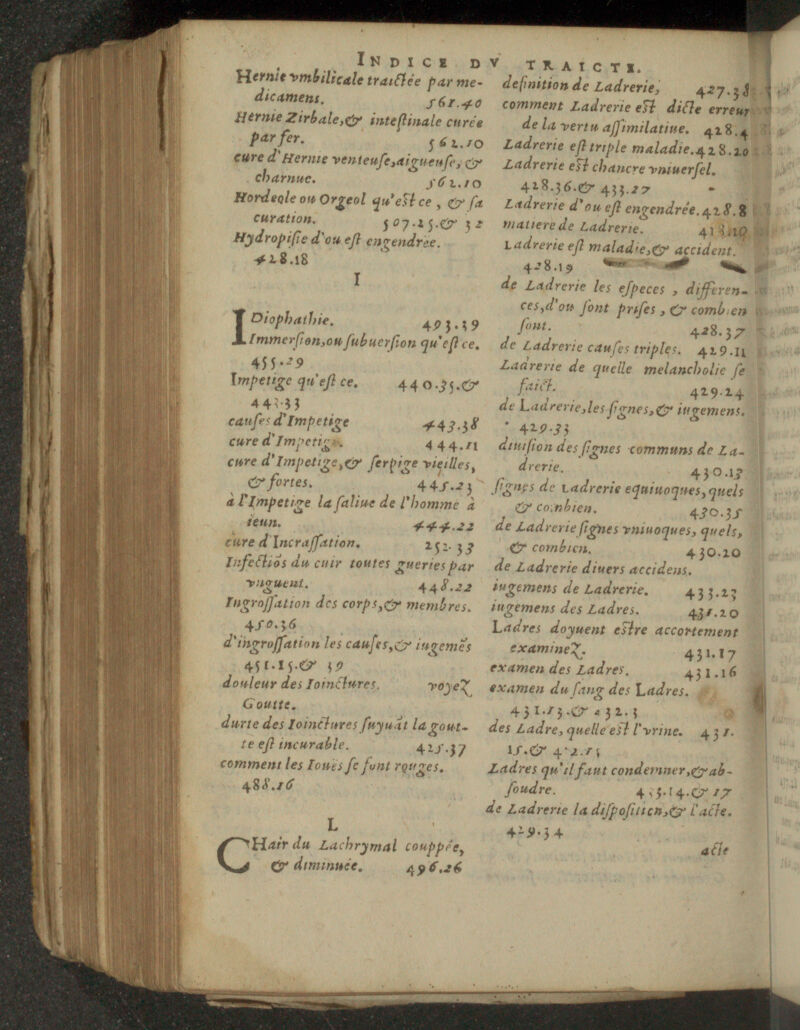 INDICE DV TRAICTE.
Hernie vmbilicale traictée par me-
dicamens. 561.40
Hernie Zirbale, & intestinale curée
par fer. 562.10
cure d'Hernie venteuse, aigueuse, &
charnue. 562.10
Hordeole ou Orgeol qu'est ce, & sa
curation. 507.25.& 32
Hydropisie d'ou est engendrée.
428.18
I
IDiophathie. 493.39
Immersion, ou subuersion qu'est ce.
455.29
Impetige qu'est ce. 440.35.&
443.33
causes d'Impetige 443.38
cure d'Impetige. 444.11
cure d'Impetige, & serpige vieilles,
& fortes. 445.23
à l'Impetige la saliue de l'homme à
ieun. 444.22
cure d'Incrassation. 252.33
Infectiõs du cuir toutes gueries par
vnguent. 448.22
Ingrossation des corps, & membres.
450.36
d'ingrossation les causes, & iugemẽs
451.15.& 39
douleur des Ioinctures. voyez
Goutte.
durte des Ioinctures suyuãt la gout-
te est incurable. 425.37
comment les Iouës se font rouges.
488.16
L
CHair du Lachrymal couppée,
& diminuée. 496.26
definition de Ladrerie, 427.38
comment Ladrerie est dicte erreur
de la vertu assimilatiue. 428.4
Ladrerie est triple maladie. 428.20
Ladrerie est chancre vniuersel.
428.36.& 433.27
Ladrerie d'ou est engendrée. 428.8
matiere de Ladrerie.
Ladrerie est maladie, & accident.
428.19
de Ladrerie les especes, differen-
ces, d'ou sont prises, & combien
sont. 428.37
de Ladrerie causes triples. 429.11
Ladrerie de quelle melancholie se
faict. 429.24
de Ladrerie, les signes, & iugemens.
429.33
diuision des signes communs de La-
drerie. 430.13
signes de Ladrerie equiuoques, quels
& combien. 430.35
de Ladrerie signes vniuoques, quels,
& combien. 430.20
de Ladrerie diuers accidens.
iugemens de Ladrerie. 433.23
iugemens des Ladres. 431.20
Ladres doyuent estre accortement
examinez. 431.17
examen des Ladres. 431.16
examen du sang des Ladres.
431.23.& 432.3
des Ladre, quelle est l'vrine. 431.
15.& 432.15
Ladres qu'il faut condemner, & ab-
soudre. 433.14.& 17
de Ladrerie la disposition, & l'acte.
429.34
acte